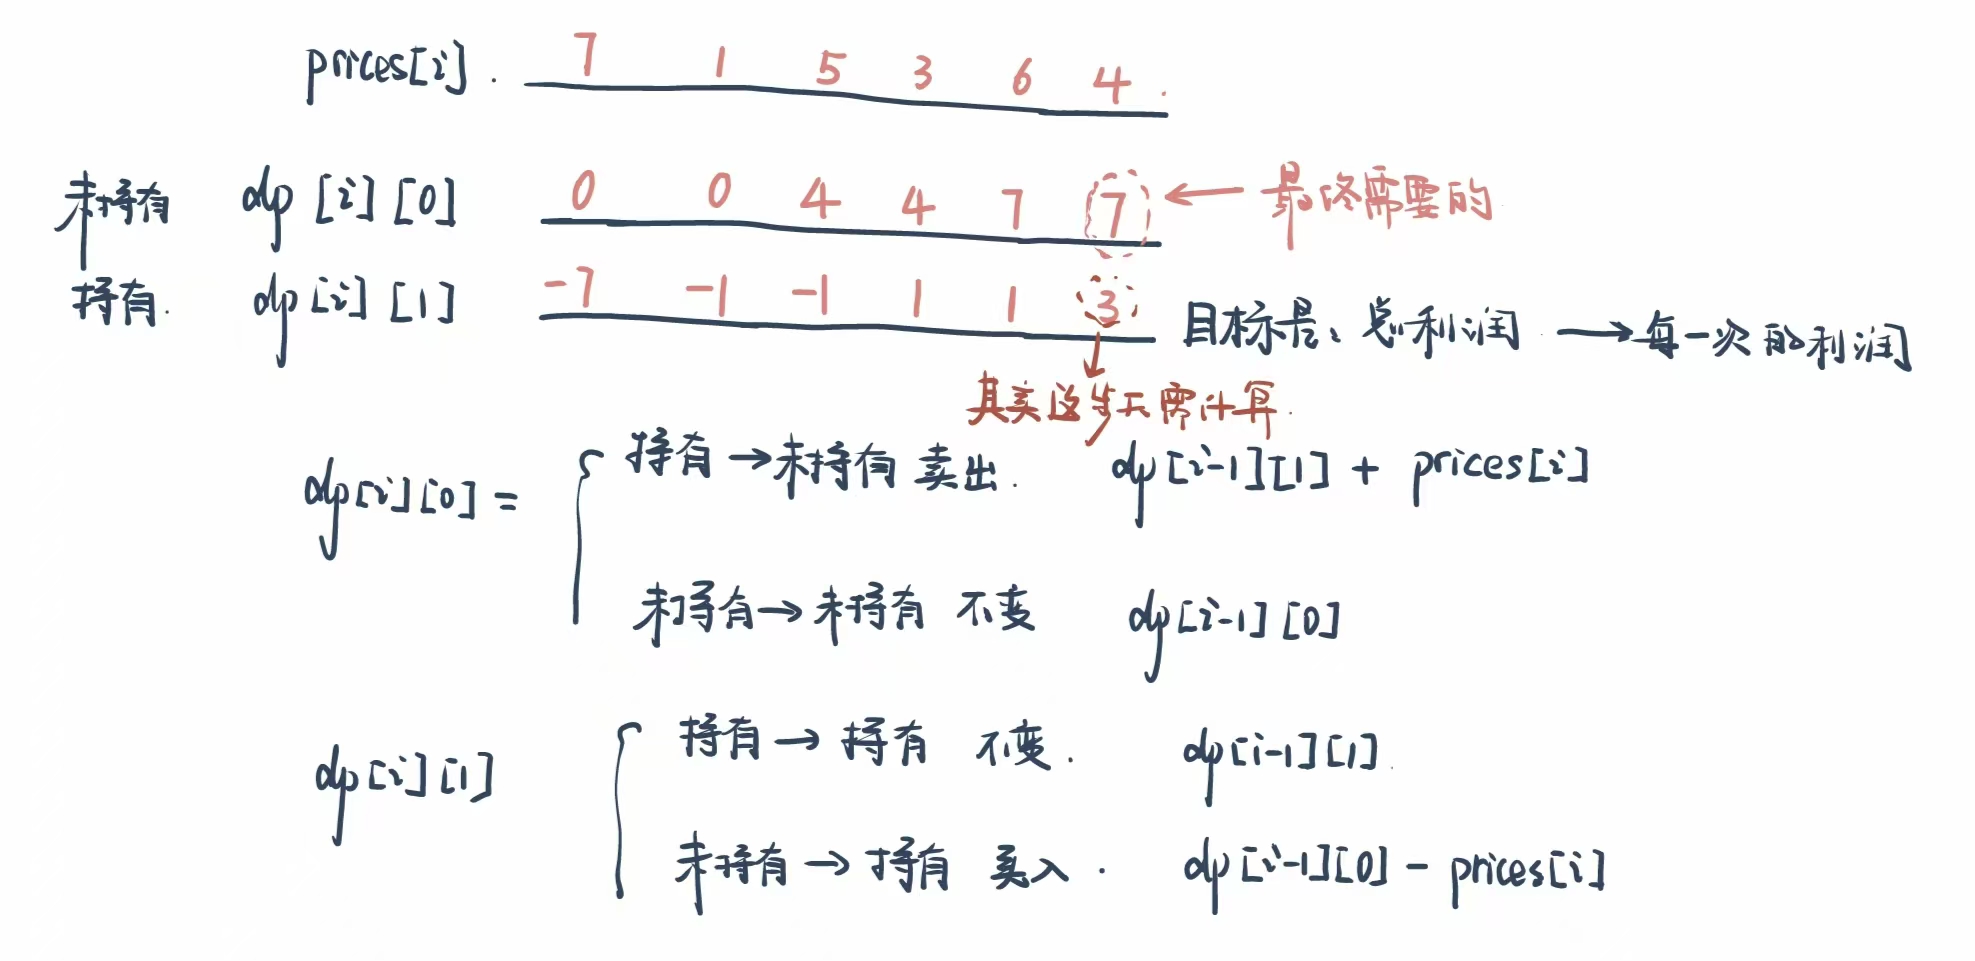 prices[i]. 7 1 5 3 6 4
未持有 dp[i][0] 0 0 4 4 7 7 ← 最终需要的
持有. dp[i][1] -7 -1 -1 1 1 3
目标是、总利润 → 每一次的利润
其实这步不需计算.
dp[i][0] =
持有→未持有 卖出. dp[i-1][1] + prices[i]
未持有→未持有 不变 dp[i-1][0]
dp[i][1]
持有→持有 不变. dp[i-1][1].
未持有→持有 买入. dp[i-1][0] - prices[i]